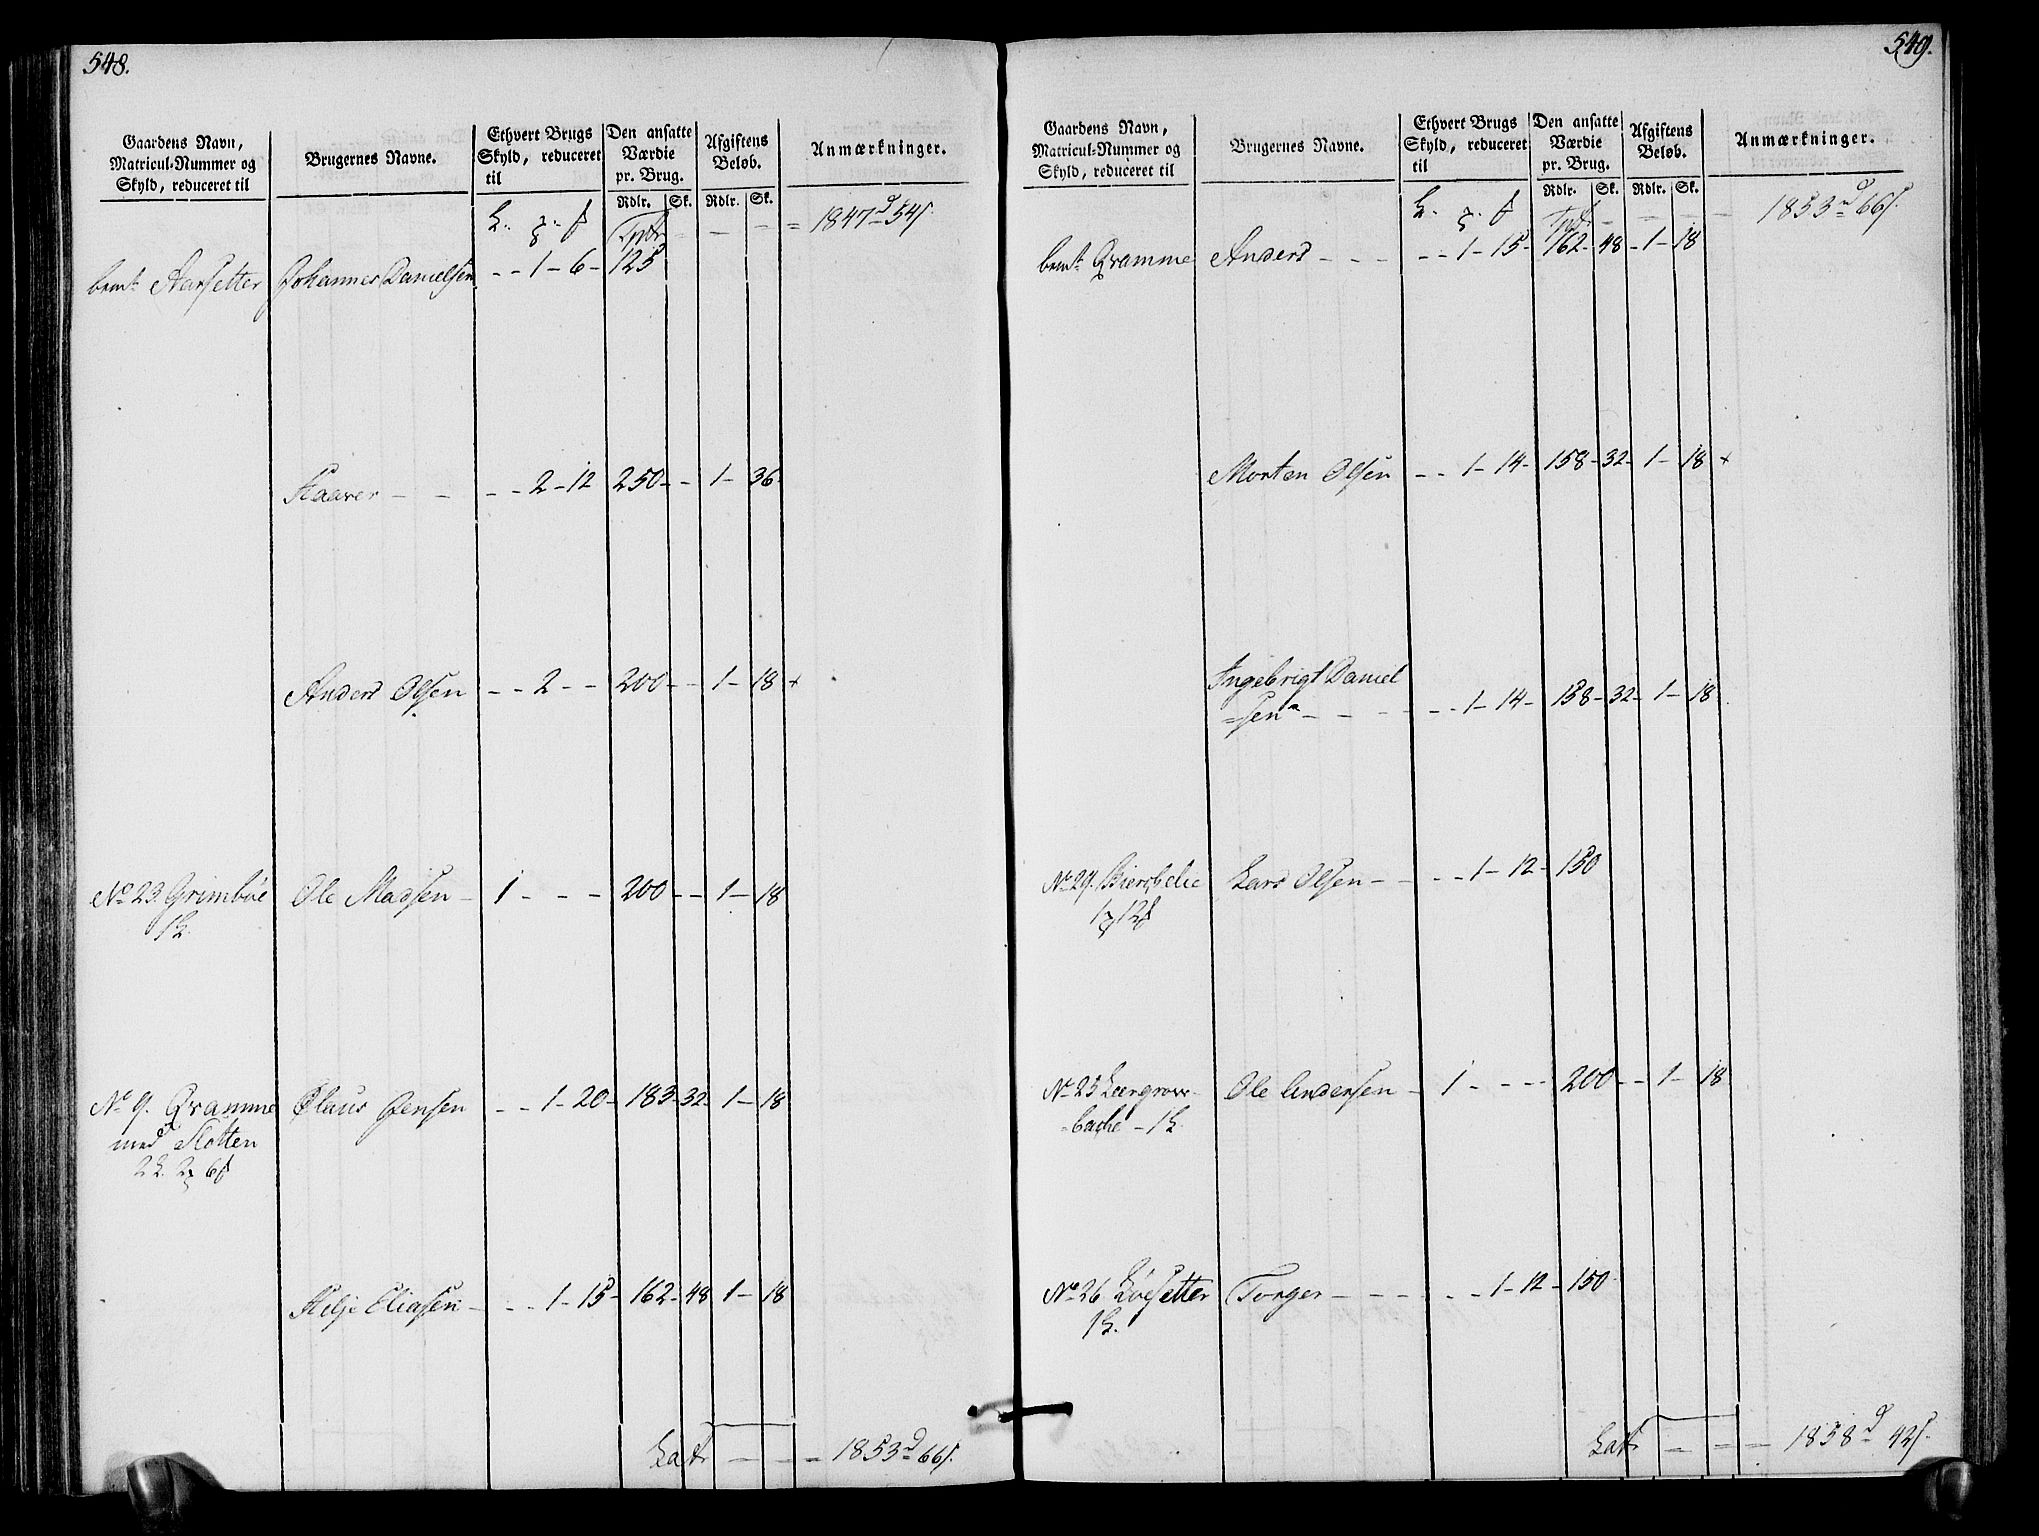 548.
Gaardens Navn, Matricul-Nummer og Skyld, reduceret til
Brugernes Navne.
Ethvert Brugs Skyld, reduceret til
Den ansatte Værdie pr. Brug.
Afgiftens Beløb.
Anmærkninger.
Rdlr. Sk. Rdlr. Sk.
Tpt = 1847 d 54 s.
bemt Aarsetter Johannes Danielsen - - 1 - 6 - 125
- - 2 - 12 250 - - 1 - 36
Anders Olsen - - 2 - - 200 - - 1 - 18 +
No 23. Grimbøe Ole Madsen - 1 - - - 200 - - 1 - 18
1 L.
No 9. Qvamme Claus Jensen - - 1 - 20 - 183 - 32 - 1 - 18
med Slotten
2 L. 2 6
Eliasen - - - 1 - 15 - 162 - 48 1 - 18
Latr - - - 1853 d 66 s.
549.
Gaardens Navn, Matricul-Nummer og Skyld, reduceret til
Brugernes Navne.
Ethvert Brugs Skyld, reduceret til
Den ansatte Værdie pr. Brug.
Afgiftens Beløb.
Anmærkninger.
Rdlr. Sk. Rdlr. Sk.
Tpt - - - - 1853 d 66 s.
bemt Qvamme Anders - - - - - 1 - 15 - 162 - 48 - 1 - 18
Morten Olsen - - 1 - 14 - 158 - 32 - 1 - 18 +
Ingebrigt Daniel
=sen - - - - - 1 - 14 - 158 - 32 - 1 - 18
No 29. Lars Olsen - - - 1 - 12 - 150
1 12
No 25 Ole Andersen - 1 - - - - 200 - - 1 - 18
=bache - 1 L.
No 26 Løesetter Torger - - - - - - 1 - 12 - 150
1 L.
Latr - - - 1858 d 42 s.